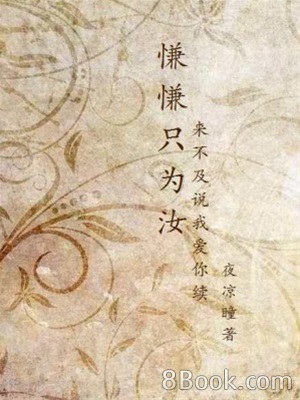 慊慊只为汝
来不及说我爱你续
夜凉瞳著
8Book.com